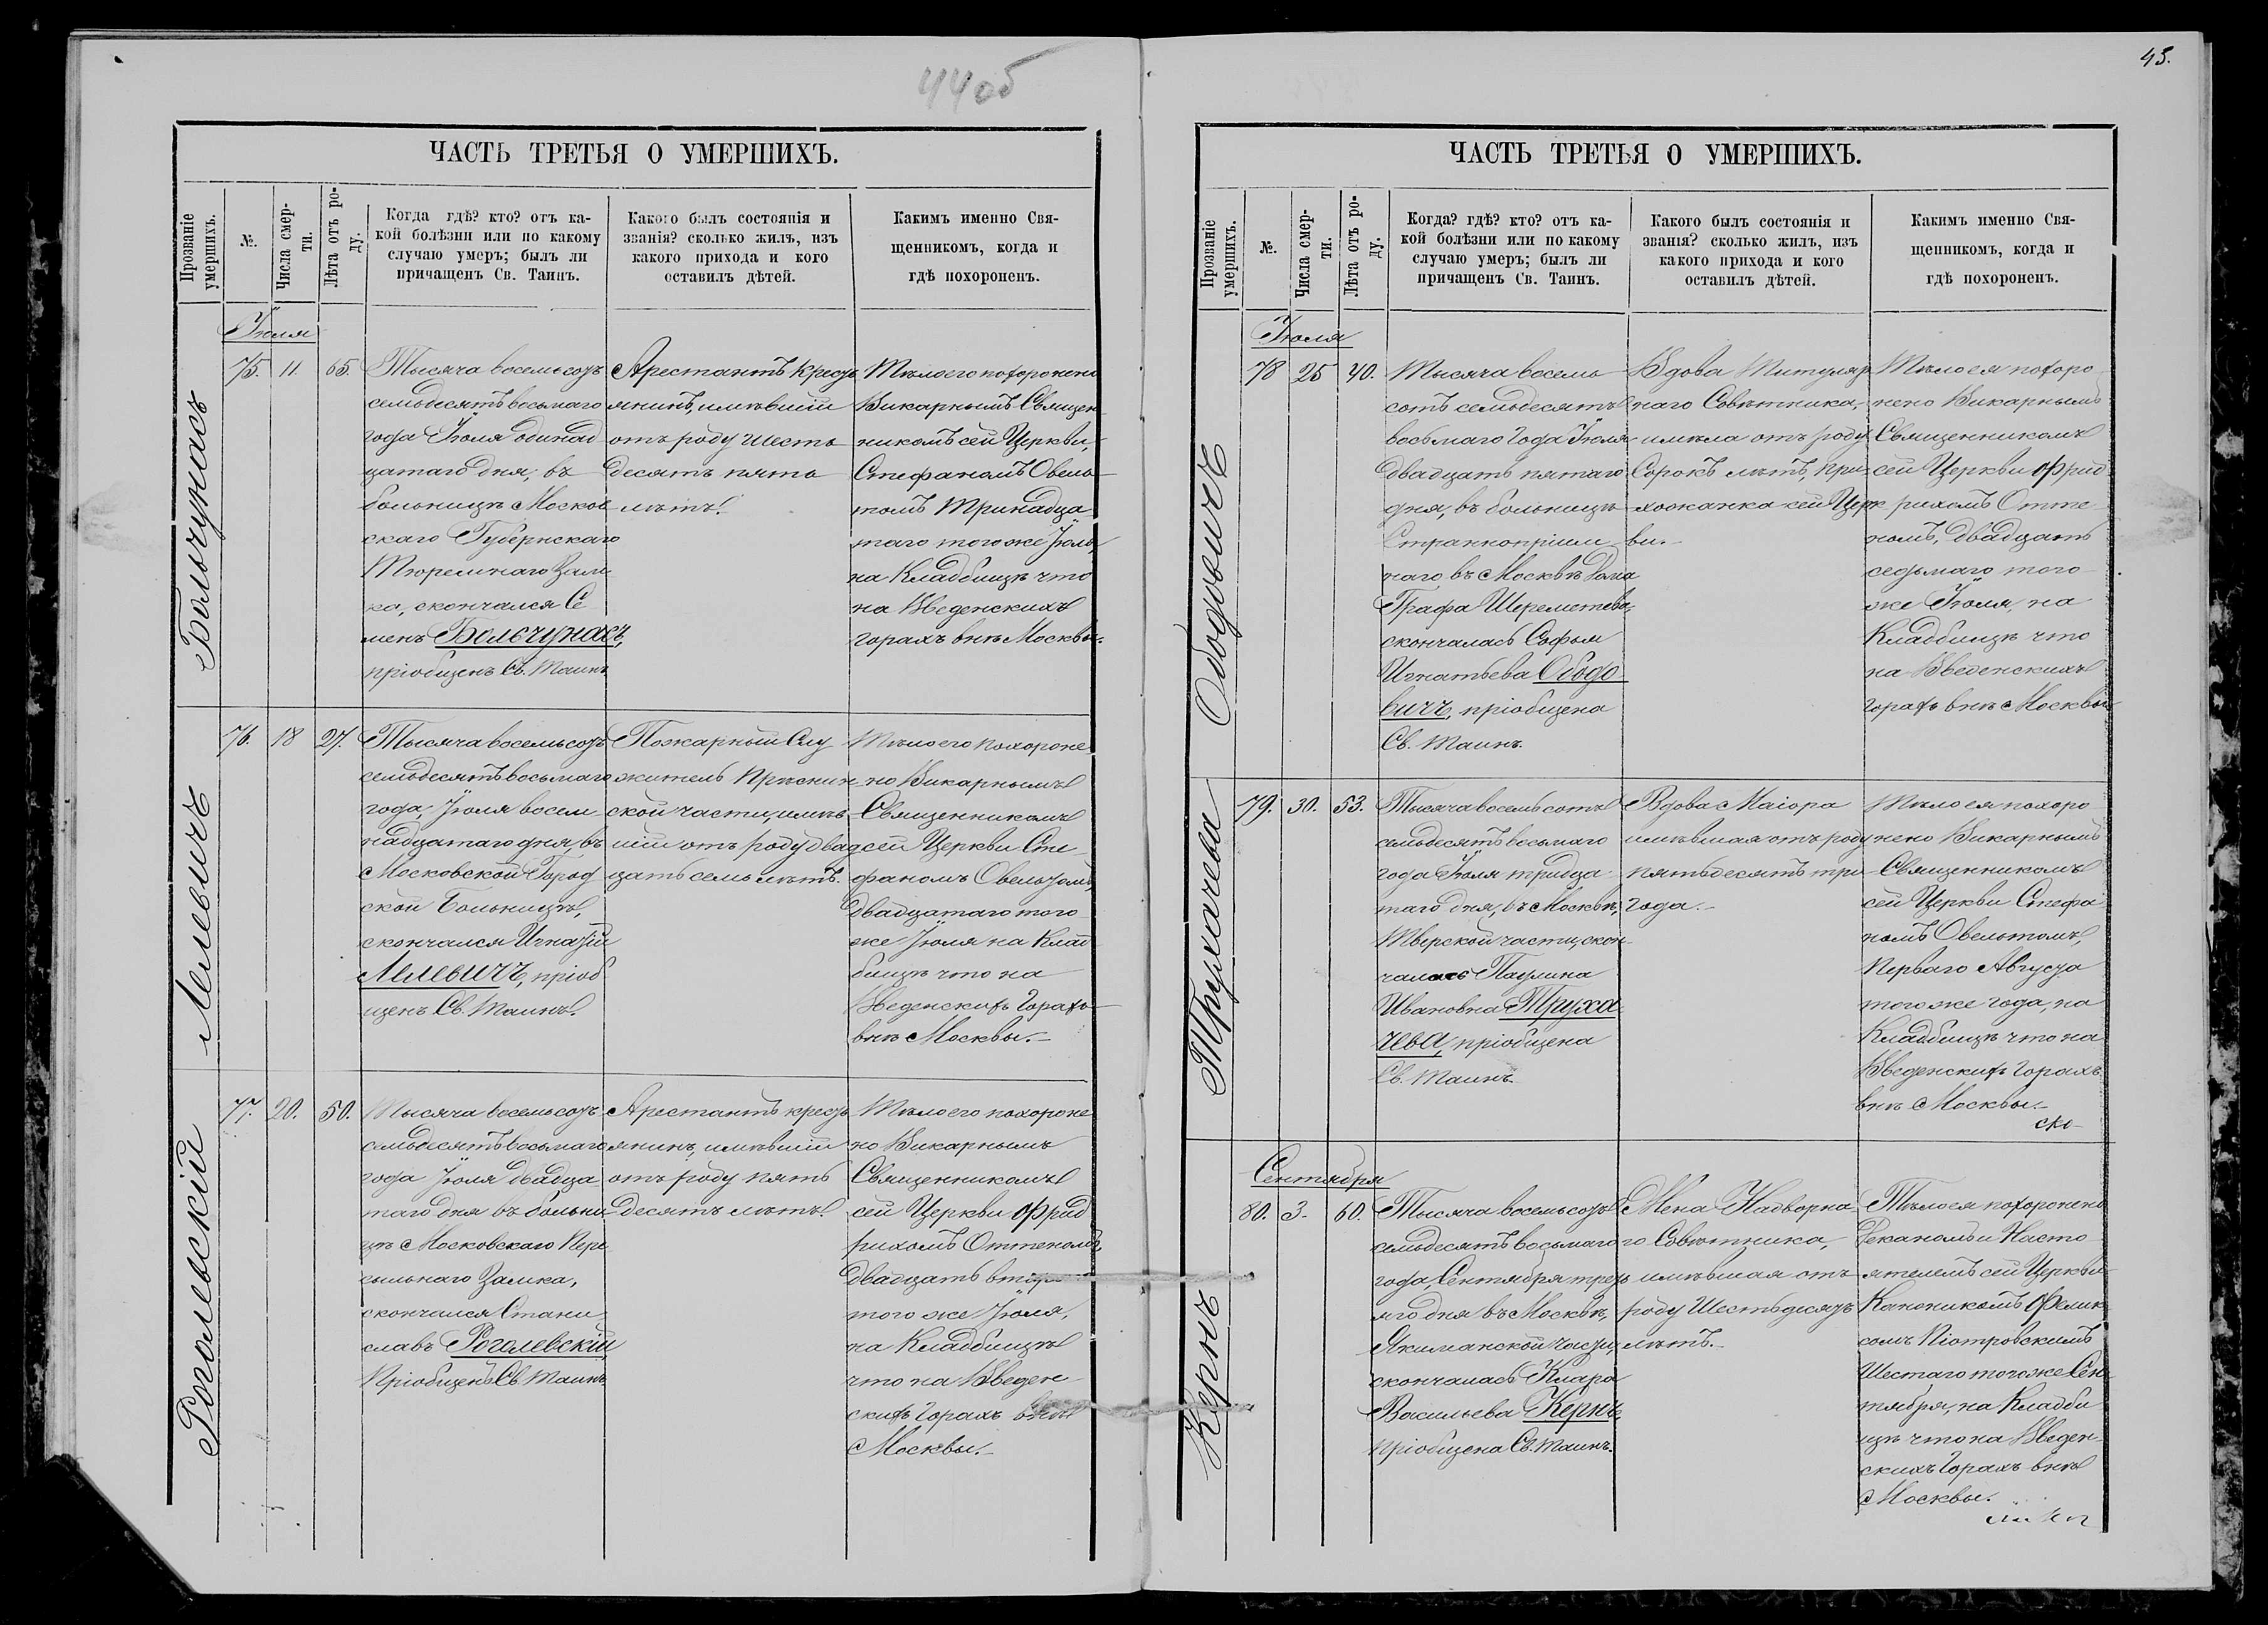 44об
ЧАСТЬ ТРЕТЬЯ О УМЕРШИХЪ.
Прозваніе умершихъ.
№.
Числа смер-
ти.
Лѣта отъ ро-
ду.
Когда гдѣ? кто? отъ ка-
кой болѣзни или по какому
случаю умеръ; былъ ли
причащенъ Св. Таинъ.
Какого былъ состоянія и
званія? сколько жилъ, изъ
какого прихода и кого
оставилъ дѣтей.
Какимъ именно Свя-
щенникомъ, когда и
гдѣ похороненъ.
Іюля
Больчунасъ
75.
11.
65.
Тысяча восемьсотъ
семьдесятъ восьмаго
года Іюля одинад
цатаго дня, въ
больницѣ Москов
скаго Губернскаго
Тюремнаго Зам
ка, скончался Се
менъ Больчунасъ,
пріобщенъ Св. Таинъ
Арестантъ кресть
янинъ, имѣвшій
отъ роду шесть
десятъ пять
лѣтъ.
Тѣло его похоронено
Викарнымъ Священ
никомъ сей Церкви,
Стефаномъ Овель
томъ Тринадца
таго того же Іюля,
на Кладбищѣ что
на Введенскихъ
горахъ внѣ Москвы.
Милевичъ
76.
18
27.
Тысяча восемьсотъ
семьдесятъ восьмаго
года, Іюля восем
надцатаго дня, въ
Московской Город
ской Больницѣ,
скончался Игнатій
Милевичъ, пріоб
щенъ Св. Таинъ.
Пожарный Слу
житель Прѣснин
ской части, имѣв
шій отъ роду двад
цать семь лѣтъ.
Тѣло его похороне
но Викарнымъ
Священникомъ
сей Церкви Сте
фаномъ Овельтомъ,
двадцатаго того
же Іюля на Клад
бищѣ что на
Введенскихъ Горахъ
внѣ Москвы.
Роголевскій
77.
20.
50.
Тысяча восемьсотъ
семьдесятъ восьмаго
года Іюля двадца
таго дня въ больни
цѣ Московскаго Пере
сыльнаго Замка,
скончался Стани
славъ Роголевскій
Пріобщенъ Св. Таинъ
Арестантъ кресть
янинъ, имѣвшій
отъ роду пять
десятъ лѣтъ.
Тѣло его похороне
но Викарнымъ
Священникомъ
сей Церкви Фрид
рихомъ Оттеномъ,
двадцать втораго
того же Іюля,
на Кладбищѣ
что на Введен
скихъ Горахъ внѣ
Москвы.
45.
ЧАСТЬ ТРЕТЬЯ О УМЕРШИХЪ.
Прозваніе умершихъ.
№.
Числа смер-
ти.
Лѣта отъ ро-
ду.
Когда? гдѣ? кто? отъ ка-
кой болѣзни или по какому
случаю умеръ; былъ ли
причащенъ Св. Таинъ.
Какого былъ состоянія и
званія? сколько жилъ, изъ
какого прихода и кого
оставилъ дѣтей.
Какимъ именно Свя-
щенникомъ, когда и
гдѣ похороненъ.
Іюля
Ободовичъ
78
25
40.
Тысяча восемь
сотъ семьдесятъ
восьмаго Года Іюля
двадцать пятаго
дня, въ больницѣ
Страннопріим
наго въ Москвѣ Дома
Графа Шереметева,
скончалась Софья
Игнатьева Ободо
вичъ, пріобщена
Св. Таинъ.
Вдова Титуляр
наго Совѣтника,
имѣла отъ роду
Сорокъ лѣтъ, при
хожанка сей Церк
ви.
Тѣло ея похоро
нено Викарнымъ
Священникомъ
сей Церкви Фрид
рихомъ Отте
номъ, двадцать
седьмаго того
же Іюля, на
Кладбищѣ что
на Введенскихъ
Горахъ внѣ Москвы
Трухачева
79.
30.
53.
Тысяча восемьсотъ
семьдесятъ восьмаго
года Іюля тридца
таго дня, въ Москвѣ,
Тверской части, скон
чалась Паулина
Ивановна Труха
чева, пріобщена
Св. Таинъ.
Вдова Маіора
имѣвшая отъ роду
пятьдесятъ три
года.
Тѣло ея похоро
нено Викарнымъ
Священникомъ
сей Церкви Стефа
номъ Овельтомъ,
Перваго Августа
того же года, на
Кладбищѣ что на
Введенскихъ Горахъ
внѣ Москвы.
Сентября
Кернъ
80.
3.
60.
Тысяча восемьсотъ
семьдесятъ восьмаго
года, Сентября треть
яго дня въ Москвѣ,
Якиманской части,
скончалась Клара
Васильева Кернъ,
пріобщена Св. Таинъ.
Жена Надворна
го Совѣтника,
имѣвшая отъ
роду Шестьдесятъ
лѣтъ.
Тѣло ея похоронено
Деканомъ и Насто
ятелемъ сей Церкви
Каноникомъ Фелик
сомъ Піотровскимъ
Шестаго того же Сен
тября, на Кладби
щѣ что на Введен
скихъ Горахъ внѣ
Москвы.